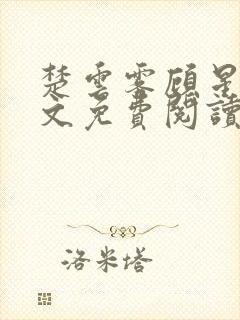 楚雲霽顧星
文免費閱讀
洛米塔